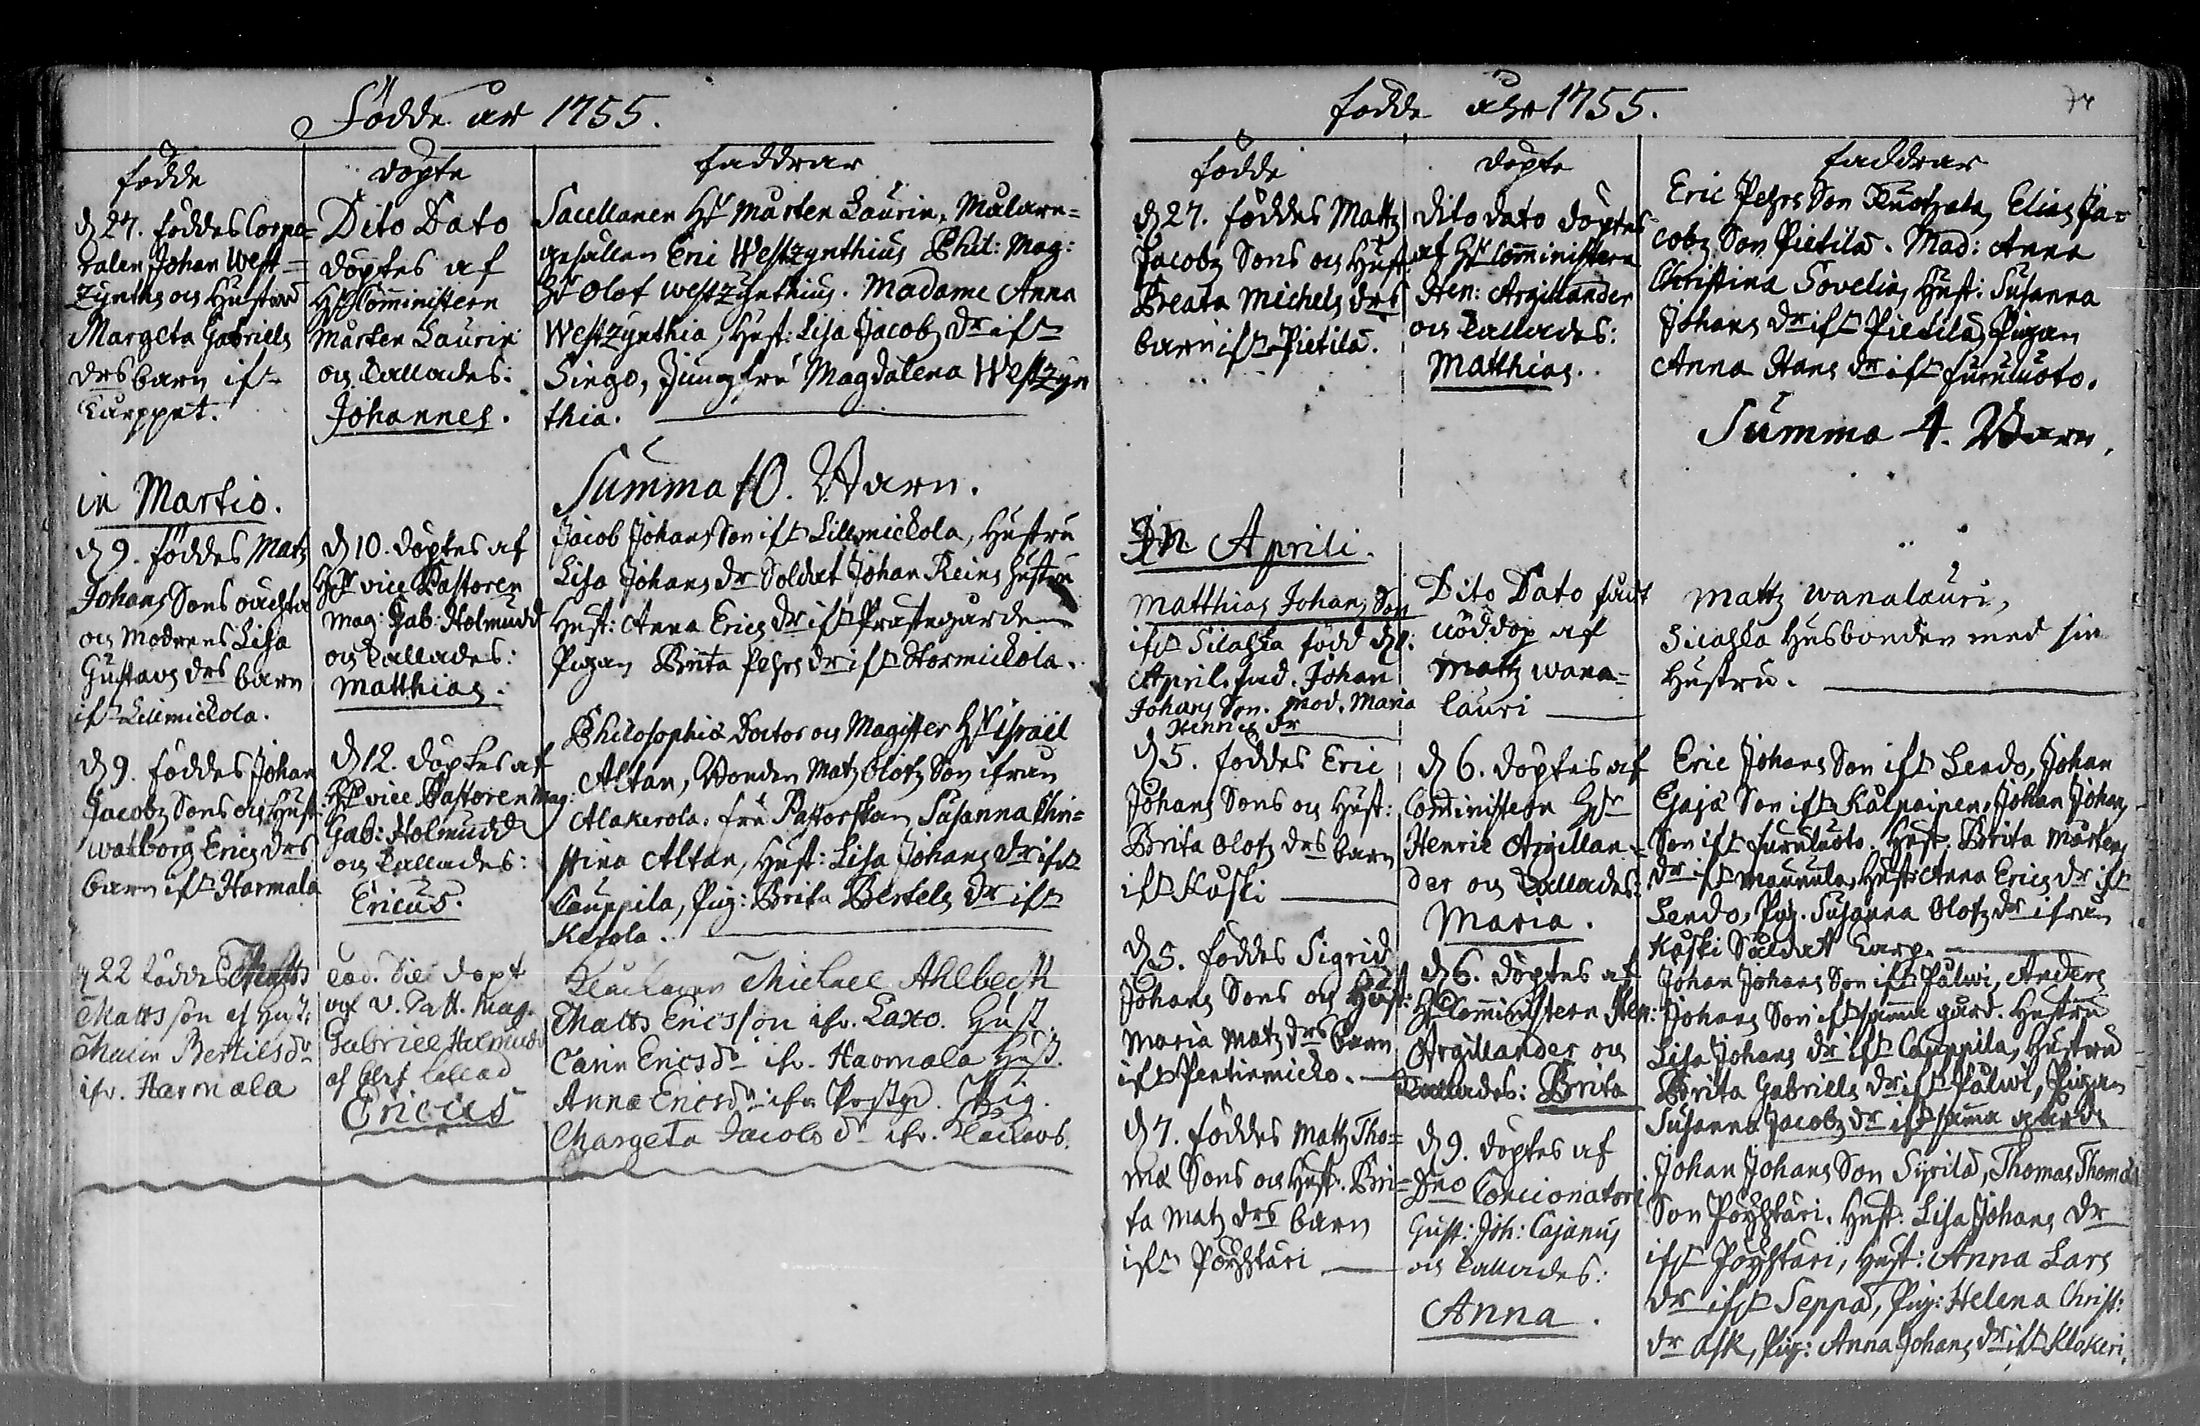 Födde år 1755.
födde
döpte
faddrar
d. 27. föddes Corpo=
ralen Johan West=
zynths och Hustrus
Margeta Gabriels
drs barn ifr.
Karppet.
Dito Dato
döptes af
Hr Comministern
Mårten Laurin
och kallades:
Johannes.
Sacellanen Hr Mårten Laurin, Målare=
gesällen Eric Westzynthius Phil: Mag:
Hr Olof Westzynthius. Madame Anna
Westzynthia, Hust: Lisa Jacobs dr ifr
Singo, Jungfru Magdalena Westzyn
thia.
Summa 10. Barn.
in Martio.
d 9. föddes Matz
Johans Sons
och modrens Lisa
Gustavs drs barn
ifr Lillmickola.
d 10. döptes af
Hr vice Pastoren
Mag: Gab: Holmudd
och kallades:
Matthias.
Jacob Johans Son ifr Lillmickola, Hustru
Lisa Johans dr Soldat Johan Reins Hustru
Hust: Anna Erics dr ifr Prästegården
Pigan Brita Pehrs dr ifr Stormickola.
d 9. föddes Johan
Jacobs Sons och Hust:
Walborg Erics drs
barn ifr Harmala
d 12. döptes af
Hr vice Pastoren Mag:
Gab: Holmudd
och kallades:
Ericus.
Philosophiæ Doctor och Magister Hr Israel
Altan, Bonden Matz Olofs Son ifrån
Alakerola. fru Pastorskan Susanna Chri=
stina Altan, Hust: Lisa Johans dr ifr
Cauppila, Pig: Brita Bertels dr ifr
Kerola.
d 22 föddes Matts
Matts son och Hust:
Malin Bertils dr
ifr. Harmala
eod. die döpt
af v. Past. Mag.
Gabriel Holmudd
och blef kallad
Ericus
Klockaren Michael Ahlbeck
Matts Ericsson ifr. Laxo. Hust.
Carin Ericsdr ifr. Haomala Hust.
Anna Ericsdr ifr Prästgd. Pig.
Margeta Jacobs dr ifr. Klockars.
födde åhr 1755.
födde
döpte
faddrar
d 27. föddes Mattz
Jacobs Sons och Hust:
Beata Michels drs
barn ifr Pietilä.
Dito dato döptes
af Hr Comministern
Hen: Argillander
och kallades:
Matthias.
Eric Pehrs Son Knotzala, Elias Ja=
cobs Son Pietilä. Mad: Anna
Christina Sovelia, Hust: Susanna
Johans dr ifr Pietilä, Pigan
Anna Hans dr ifr Furuluoto.
Summa 4. Barn.
In Aprili.
Matthias Johans Son
ifr Sicalka född d
April. fad. Johan
Johans Son. mod. Maria
Henrics dr
Dito Dato fådt
nöddop af
Mattz wana=
lauri
Mattz wanalauri,
Sicalka Husbonden med sin
Hustru.
d 5. föddes Eric
Johans Sons och Hust:
Brita Olofs drs barn
ifr Koski
d 6. döptes af
Comministern Hr
Henric Argillan=
der och kallades:
Maria.
Eric Johans Son ifr Lendo, Johan
Son ifr Kalpainen, Johan Johans
Son ifr Furuluoto. Hust. Brita Mårtens
dr ifr Maunula, Hust: Anna Erics dr ifr
Lendo, Pig. Susanna Olofs dr ifrån
Koski Soldat Carp.
d 5. föddes Sigrid
Johans Sons och Hust:
Maria Matz drs barn
ifr Pentinmicko.
d 6. döptes af
Hr Comministern Hen:
Argillander och
kallades: Brita
Johan Johans Son ifr Palwi, Anders
Johans Son ifr samma gård. Hustru
Lisa Johans dr ifr Cauppila, Hustru
Brita Gabriels dr ifr Palwi, Pigan
Susanna Jacobs dr ifr sama gård
d 7. föddes Mattz Tho=
mæ Sons och Hust. Bri=
ta Matz drs barn
ifr Pöyhtäri
d 9. döptes af
Dno Concionatore
Gust: Joh: Cajanus
och kallades:
Anna.
Johan Johans Son Syrilä, Thomas Thomæ
Son Pöyhtäri. Hust: Lisa Johans dr
ifr Pöyhtäri, Hust: Anna Lars
dr ifr Seppä, Pig: Helena Christ:
dr Ask, Pig: Anna Johans dr ifr Klokari.